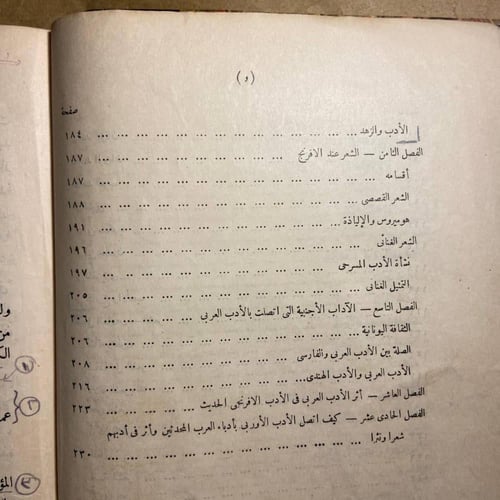 ( و )
صفحة
الأدب والزهد ... ... ... ... ... ... ... ... ... ... ... ... ١٨٤
الفصل الثامن — الشعر عند الافرنج ... ... ... ... ... ... ... ... ١٨٧
أقسامه ... ... ... ... ... ... ... ... ... ... ... ١٨٧
الشعر القصصى ... ... ... ... ... ... ... ... ... ... ١٨٨
هوميروس والإلياذة ... ... ... ... ... ... ... ... ... ١٩١
الشعر الغنائى ... ... ... ... ... ... ... ... ... ... ١٩٦
نشأة الأدب المسرحى ... ... ... ... ... ... ... ... ... ١٩٧
التمثيل الغنائى ... ... ... ... ... ... ... ... ... ... ٢٠٥
الفصل التاسع — الآداب الأجنبية التى اتصلت بالأدب العربى ... ... ... ... ٢٠٦
الثقافة اليونانية ... ... ... ... ... ... ... ... ... ... ٢٠٦
الصلة بين الأدب العربى والفارسى ... ... ... ... ... ... ... ٢٠٨
الأدب العربى والأدب الهندى... ... ... ... ... ... ... ... ٢١٦
الفصل العاشر — أثر الأدب العربى فى الأدب الافرنجى الحديث ... ... ... ... ٢٢٣
الفصل الحادى عشر — كيف اتصل الأدب الأوربى بأدباء العرب المحدثين وأثر فى أدبهم
شعرا ونثرا ... ... ... ... ... ... ... ... ... ... ٢٣٠